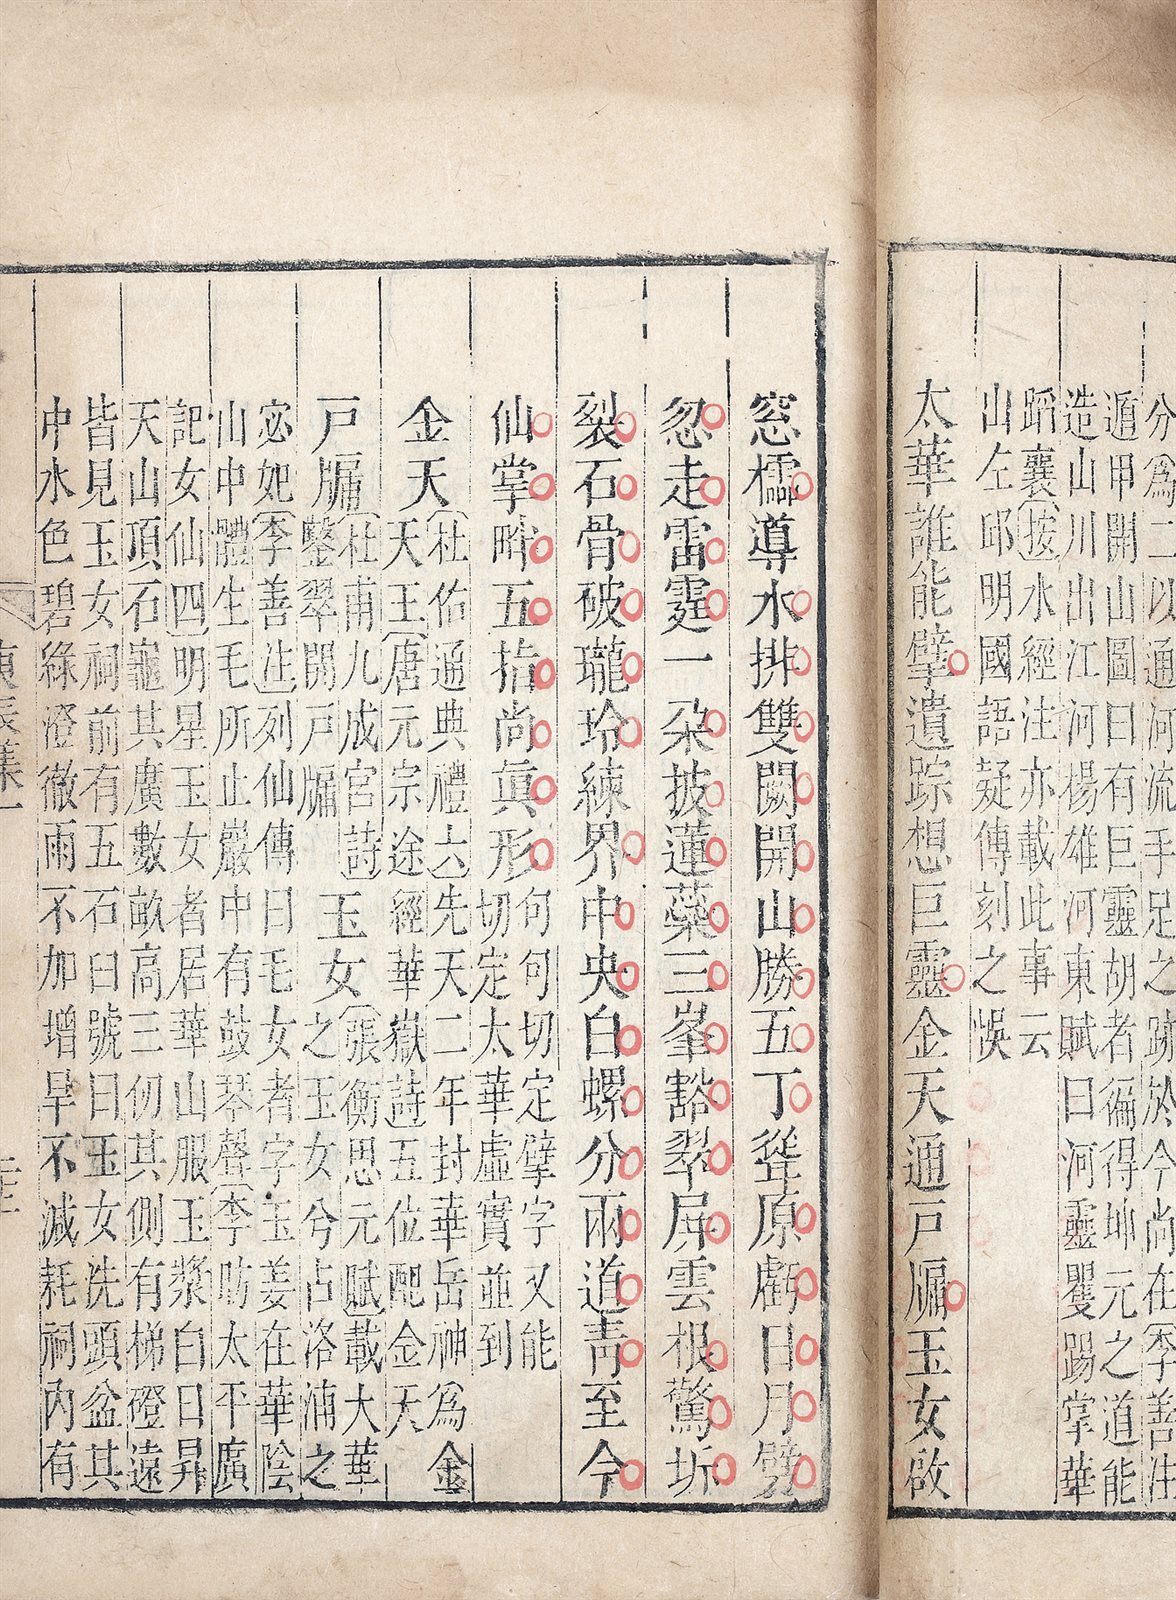 分為二以通河流手足之跡於今尚在李善注
遁甲開山圖曰有巨靈胡者徧得坤元之道能
造山川出江河楊雄河東賦曰河靈矍踢掌華
蹈襄按水經注亦載此事云
山左邱明國語疑傳刻之悞
太華誰能擘遺踪想巨靈金天通戸牖玉女啟
窓櫺導水排雙闕開山勝五丁聳原虧日月劈
忽走雷霆一朶披蓮蘂三峯豁翠屏雲根驚坼
裂石骨破瓏玲練界中央白螺分兩道靑至今
仙掌畔五指尚眞形句句切定擘字又能
切定太華虛實並到
金天杜佑通典禮六先天二年封華岳神為金
天王唐元宗途經華嶽詩五位配金天
戸牖杜甫九成宮詩
鑿翠開戸牖
玉女張衡思元賦載大華
之玉女兮占洛浦之
宓妃李善注列仙傳曰毛女者字玉姜在華陰
山中體生毛所止巖中有鼓琴聲李昉太平廣
記女仙四明星玉女者居華山服玉漿白日昇
天山頂石龜其廣數畝高三仞其側有梯磴遠
皆見玉女祠前有五石臼號曰玉女洗頭盆其
中水色碧綠澄徹雨不加增旱不減耗祠內有